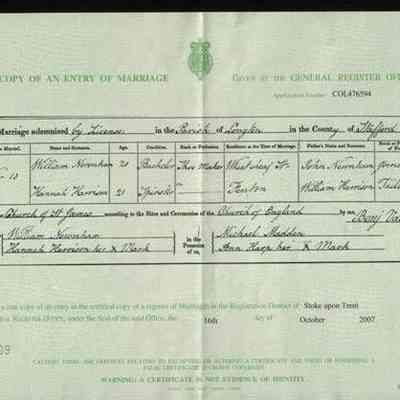 COPY OF AN ENTRY OF MARRIAGE
GIVEN AT THE GENERAL REGISTER OF
Application Number COL476594
Marriage solemnized by Licence in the Parish of Longton in the County of Stafford
Married. Name and Surname. Age. Condition. Rank or Profession. Residence at the Time of Marriage. Father's Name and Surname.
William Newnham 21 Bachelor Shoe Maker John Newnham
Hannah Harrison 21 Spinster Fenton William Harrison
Church of St James according to the Rites and Ceremonies of the Church of England by me,
William Newnham in the Presence of us, Michael Madden
Hannah Harrison her X Mark Ann Harp her X Mark
a true copy of an entry in the certified copy of a register of Marriages in the Registration District of Stoke upon Trent
under the Seal of the said Office, the 16th day of October 2007
CAUTION: THERE ARE OFFENCES RELATING TO FALSIFYING OR ALTERING A CERTIFICATE AND USING OR POSSESSING A
FALSE CERTIFICATE. © CROWN COPYRIGHT
WARNING: A CERTIFICATE IS NOT EVIDENCE OF IDENTITY.